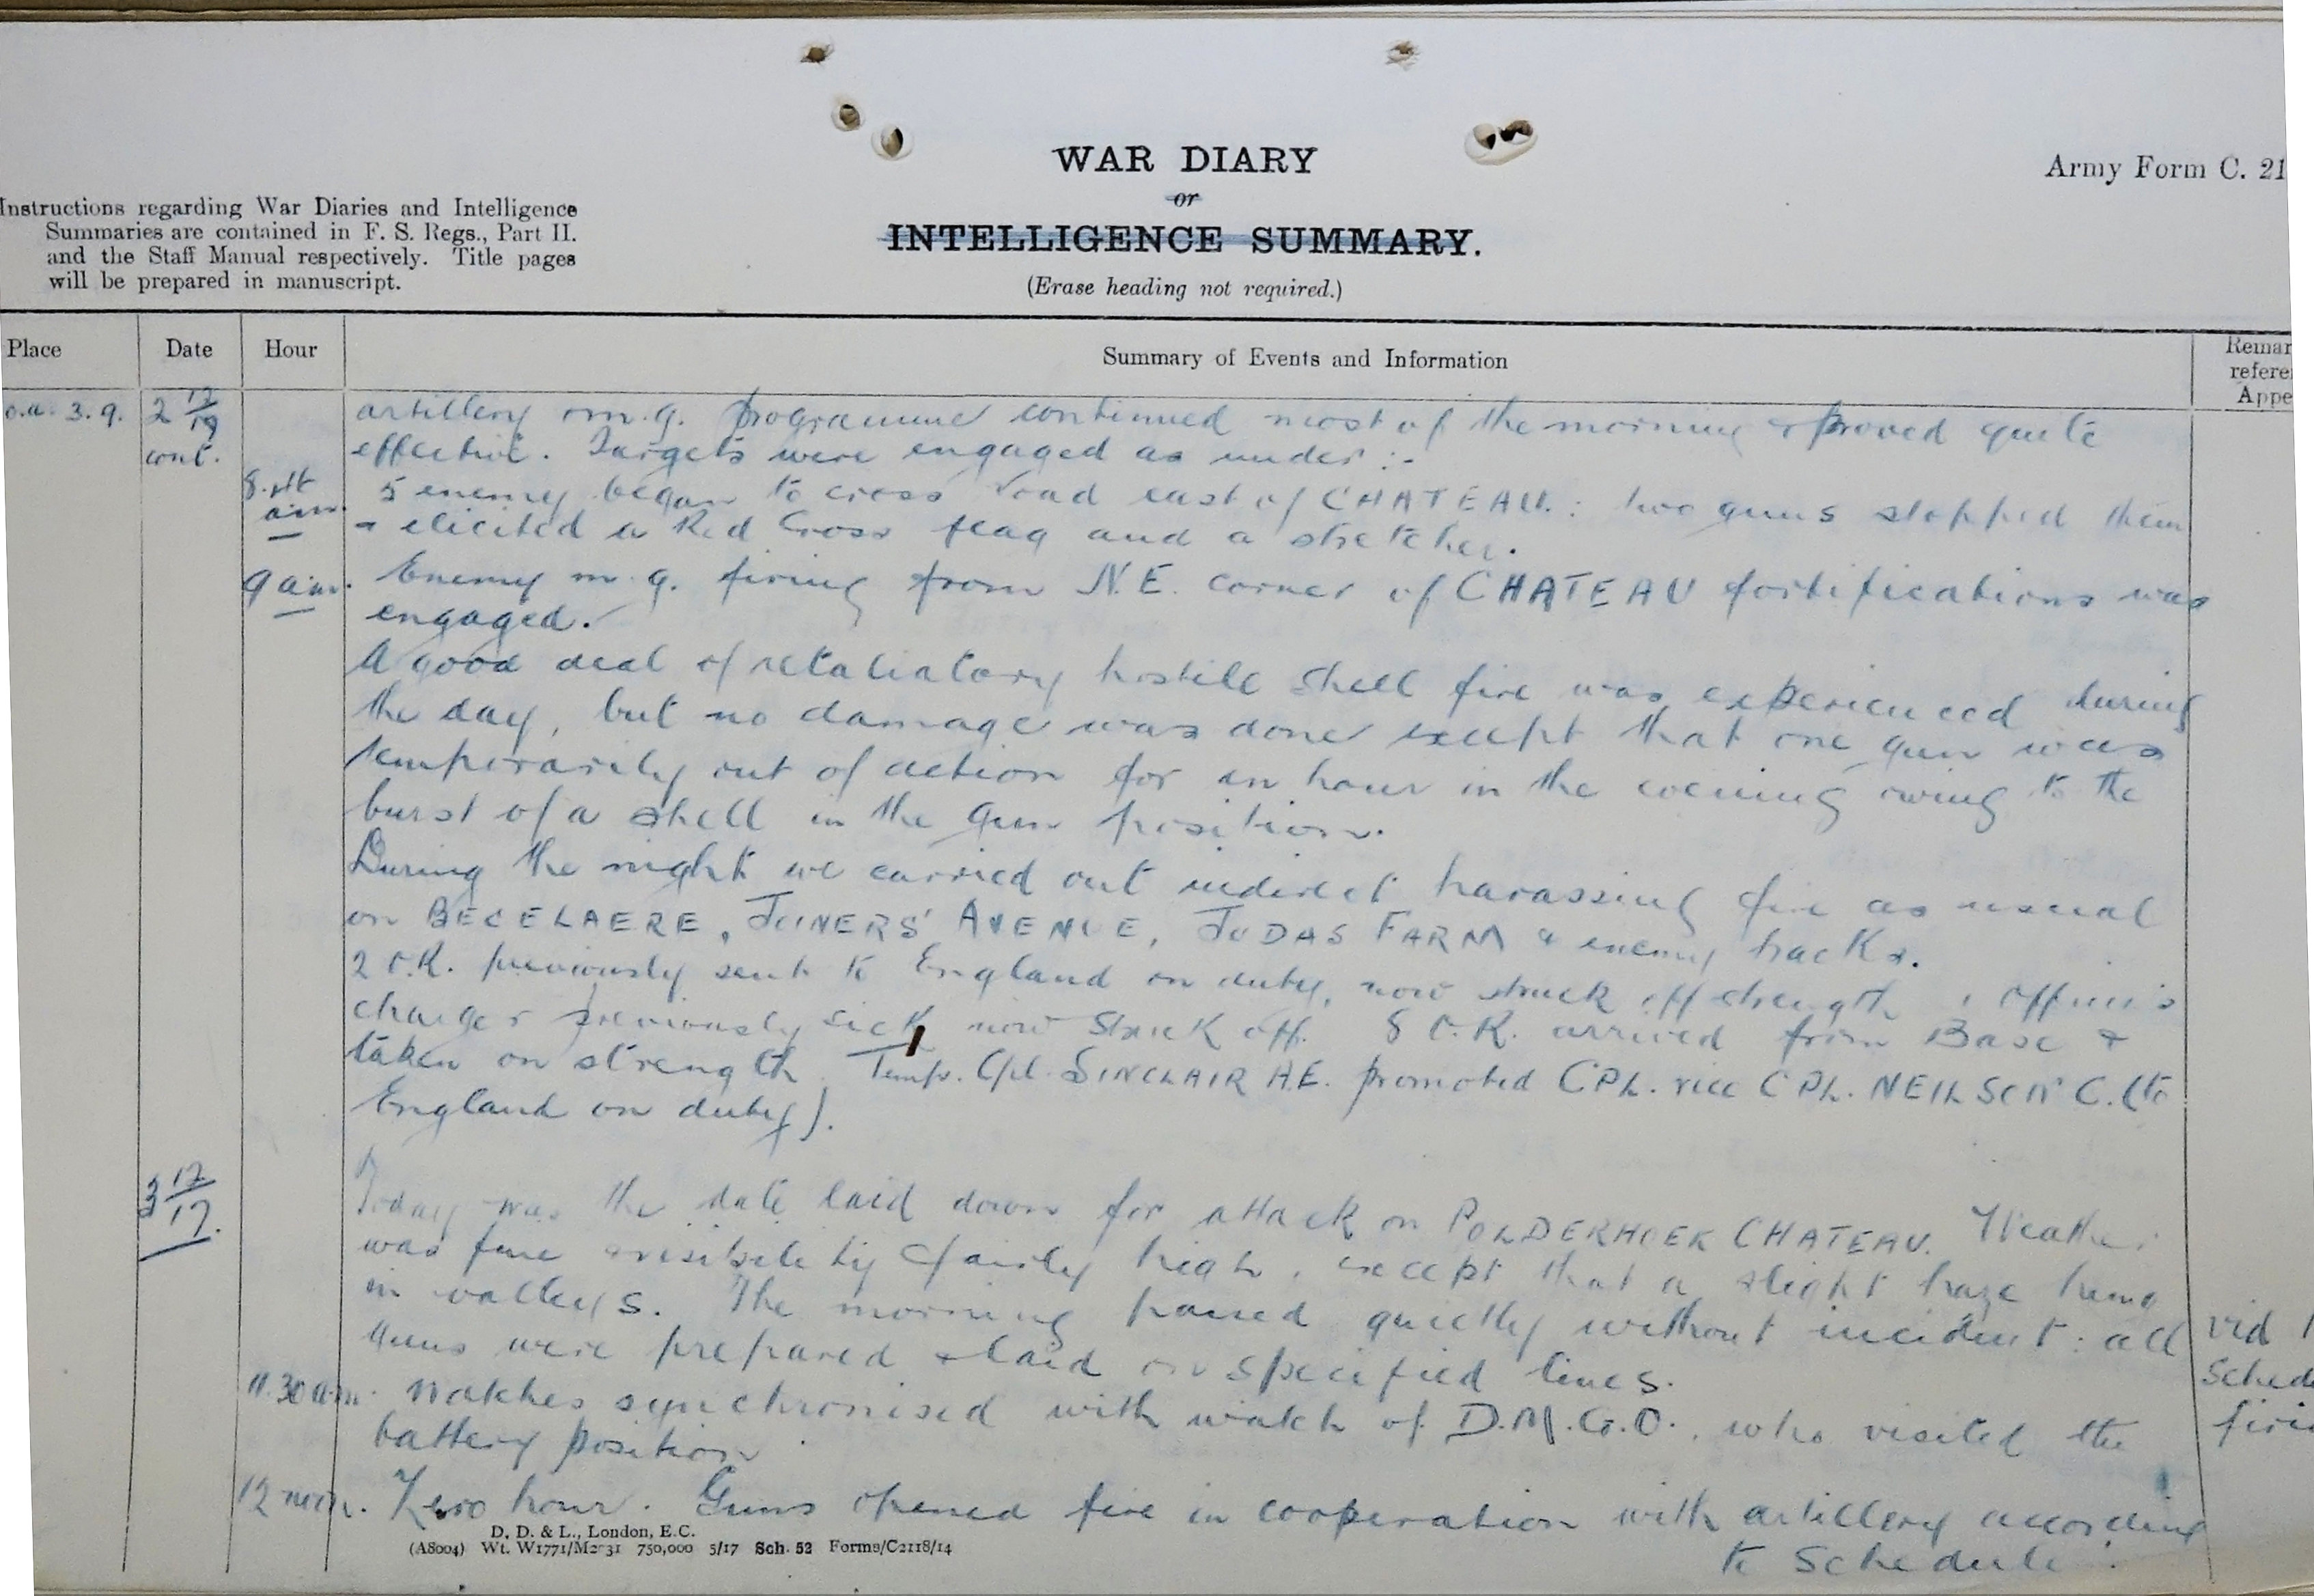 WAR DIARY
or
INTELLIGENCE SUMMARY.
(Erase heading not required.)
Army Form C. 21
Instructions regarding War Diaries and Intelligence
Summaries are contained in F. S. Regs., Part II.
and the Staff Manual respectively. Title pages
will be prepared in manuscript.
Place Date Hour Summary of Events and Information Remar
refere
Appe
3. 9. 2 12/17 artillery & m.g. programme continued most of the morning & proved quite
cont. effective. Targets were engaged as under :-
8. am. 5 enemy began to cross road east of CHATEAU. : two guns stopped them
& elicited a Red Cross flag and a stretcher.
9 am. Enemy m. g. firing from N.E. corner of CHATEAU fortifications was
engaged.
A good deal of retaliatory hostile shell fire was experienced during
the day, but no damage was done except that one gun was
temporarily out of action for an hour in the evening owing to the
burst of a shell in the gun position.
During the night we carried out indirect harassing fire as usual
on BECELAERE, JOINERS' AVENUE, JUDAS FARM & enemy tracks.
2 O.R. previously sent to England on duty, now struck off strength, 1 officer's
charger previously sick now struck off. 8 O.R. arrived from Base &
taken on strength. Temp. Cpl. SINCLAIR A.E. promoted CPL. vice CPL. NEILSON C. (to
England on duty).
3 12/17. Today was the date laid down for attack on POLDERHOEK CHATEAU. Weather
was fine & visibility fairly high, except that a slight haze hung
in valleys. The morning passed quietly without incident : all vid
guns were prepared & laid on specified lines. Sched
11.30 a.m. Watches synchronised with watch of D.M.G.O., who visited the firi
battery position.
12 noon. Zero hour. Guns opened fire in cooperation with artillery according
to Schedule.
D. D. & L., London, E.C.
(A8004) Wt. W1771/M2 31 750,000 5/17 Sch. 52 Forms/C2118/14